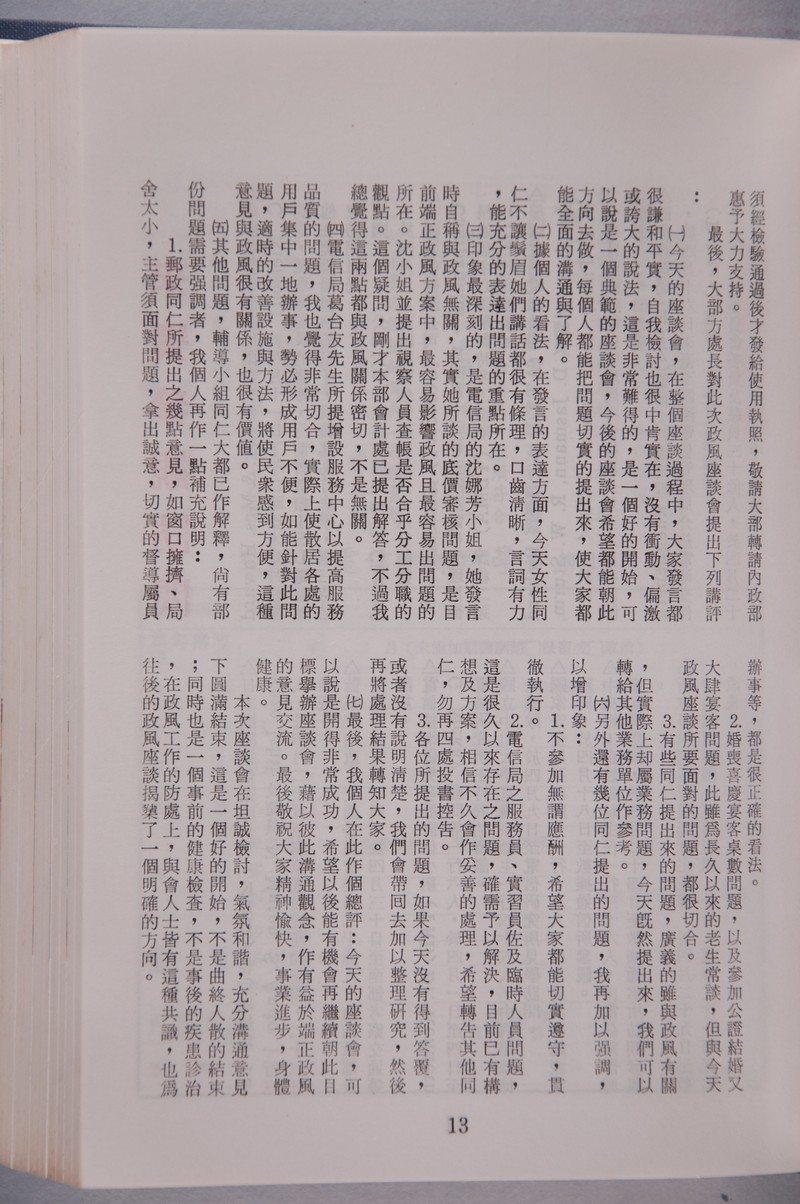 須經檢驗通過後才發給使用執照，敬請大部轉請內政部
惠予大力支持。
最後，大部方處長對此次政風座談會提出下列講評
：
㈠今天的座談會，在整個座談過程中，大家發言都
很謙和平實，自我檢討也很中肯實在，沒有衝動、偏激
或誇大的說法，這是非常難得的，是一個好的開始，可
以說是一個典範的座談會，今後的座談會希望都能朝此
方向去做，每個人都能把問題切實的提出來，使大家都
能全面的溝通與了解。
㈡據個人的看法，在發言的表達方面，今天女性同
仁不讓鬚眉她們講話都很有條理，口齒清晰，言詞有力
，能充分的表達出問題的重點所在。
㈢印象最深刻的，是電信局的沈娜芳小姐，她發言
時自稱與政風無關，其實她所談的底價審核問題，是目
前端正政風方案中，最容易影響政風且最容易出問題的
所在。沈小姐並提出視察人員查帳是否合乎分工分職的
觀點。這個疑問，剛才本部會計處已提出解答，不過我
總覺得這兩點都與政風關係密切，不是無關。
㈣電信局葛台友先生所提增設服務中心以提高服務
品質的問題，我也覺得非常切合，實際上使散居各處的
用戶集中一地辦事，勢必形成用戶不便，如能針對此問
題，適時的改善設施與方法，將使民衆感到方便，這種
意見與政風很有關係，也很有價值。
㈤其他問題，輔導小組同仁大都已作解釋，尚有部
份問題需要强調者，我個人再作一點補充說明：
1.郵政同仁所提出之幾點意見，如窗口擁擠、局
舍太小，主管須面對問題，拿出誠意，切實的督導屬員
辦事等，都是很正確的看法。
2.婚喪喜慶宴客桌數問題，以及參加公證結婚又
大肆宴客問題，此雖爲長久以來的老生常談，但與今天
政風座談所要面對的問題，都很切合。
3.有些同仁提出來的問題，廣義的雖與政風有關
，但實際上却屬業務問題，今天旣然提出來，我們可以
轉給其他業務單位作參考。
㈥另外還有幾位同仁提出的問題，我再加以强調，
以增印象：
1.不參加無謂應酬，希望大家都能切實遵守，貫
徹執行。
2.電信局之服務員、實習員佐及臨時人員問題，
這是很久以來存在之問題，確需予以解決，目前已有構
想及方案，相信不久會作妥善的處理，希望轉告其他同
仁，勿再四處投書控告。
3.各位所提出的問題，如果今天沒有得到答覆，
或者沒有說明淸楚，我們會帶回去加以整理研究，然後
再將處理結果轉知大家。
㈦最後，我個人在此作個總評：今天的座談會，可
以說是開得非常成功，希望以後能有機會再繼續朝此目
標舉辦座談會，藉以彼此溝通觀念，作有益於端正政風
的意見交流。最後敬祝大家精神愉快，事業進步，身體
健康。
本次座談會在坦誠檢討，氣氛和諧，充分溝通意見
下圓滿結束，這是一個好的開始，不是曲終人散的結束
；同時也是一個事前的健康檢查，不是事後的疾患診治
，在政風工作的防處上，與會人士皆有這種共識，也爲
往後的政風座談揭櫫了一個明確的方向。
13